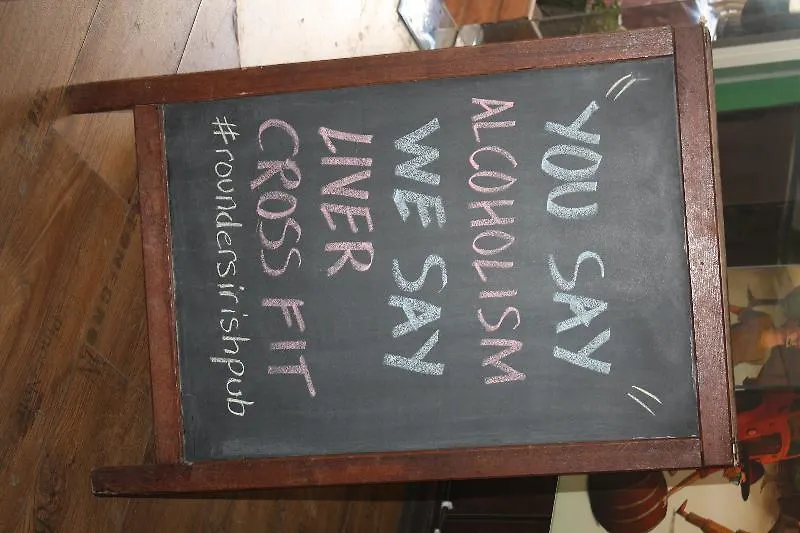 " YOU SAY "
ALCOHOLISM
WE SAY
LIVER
CROSS FIT
#roundersirishpub